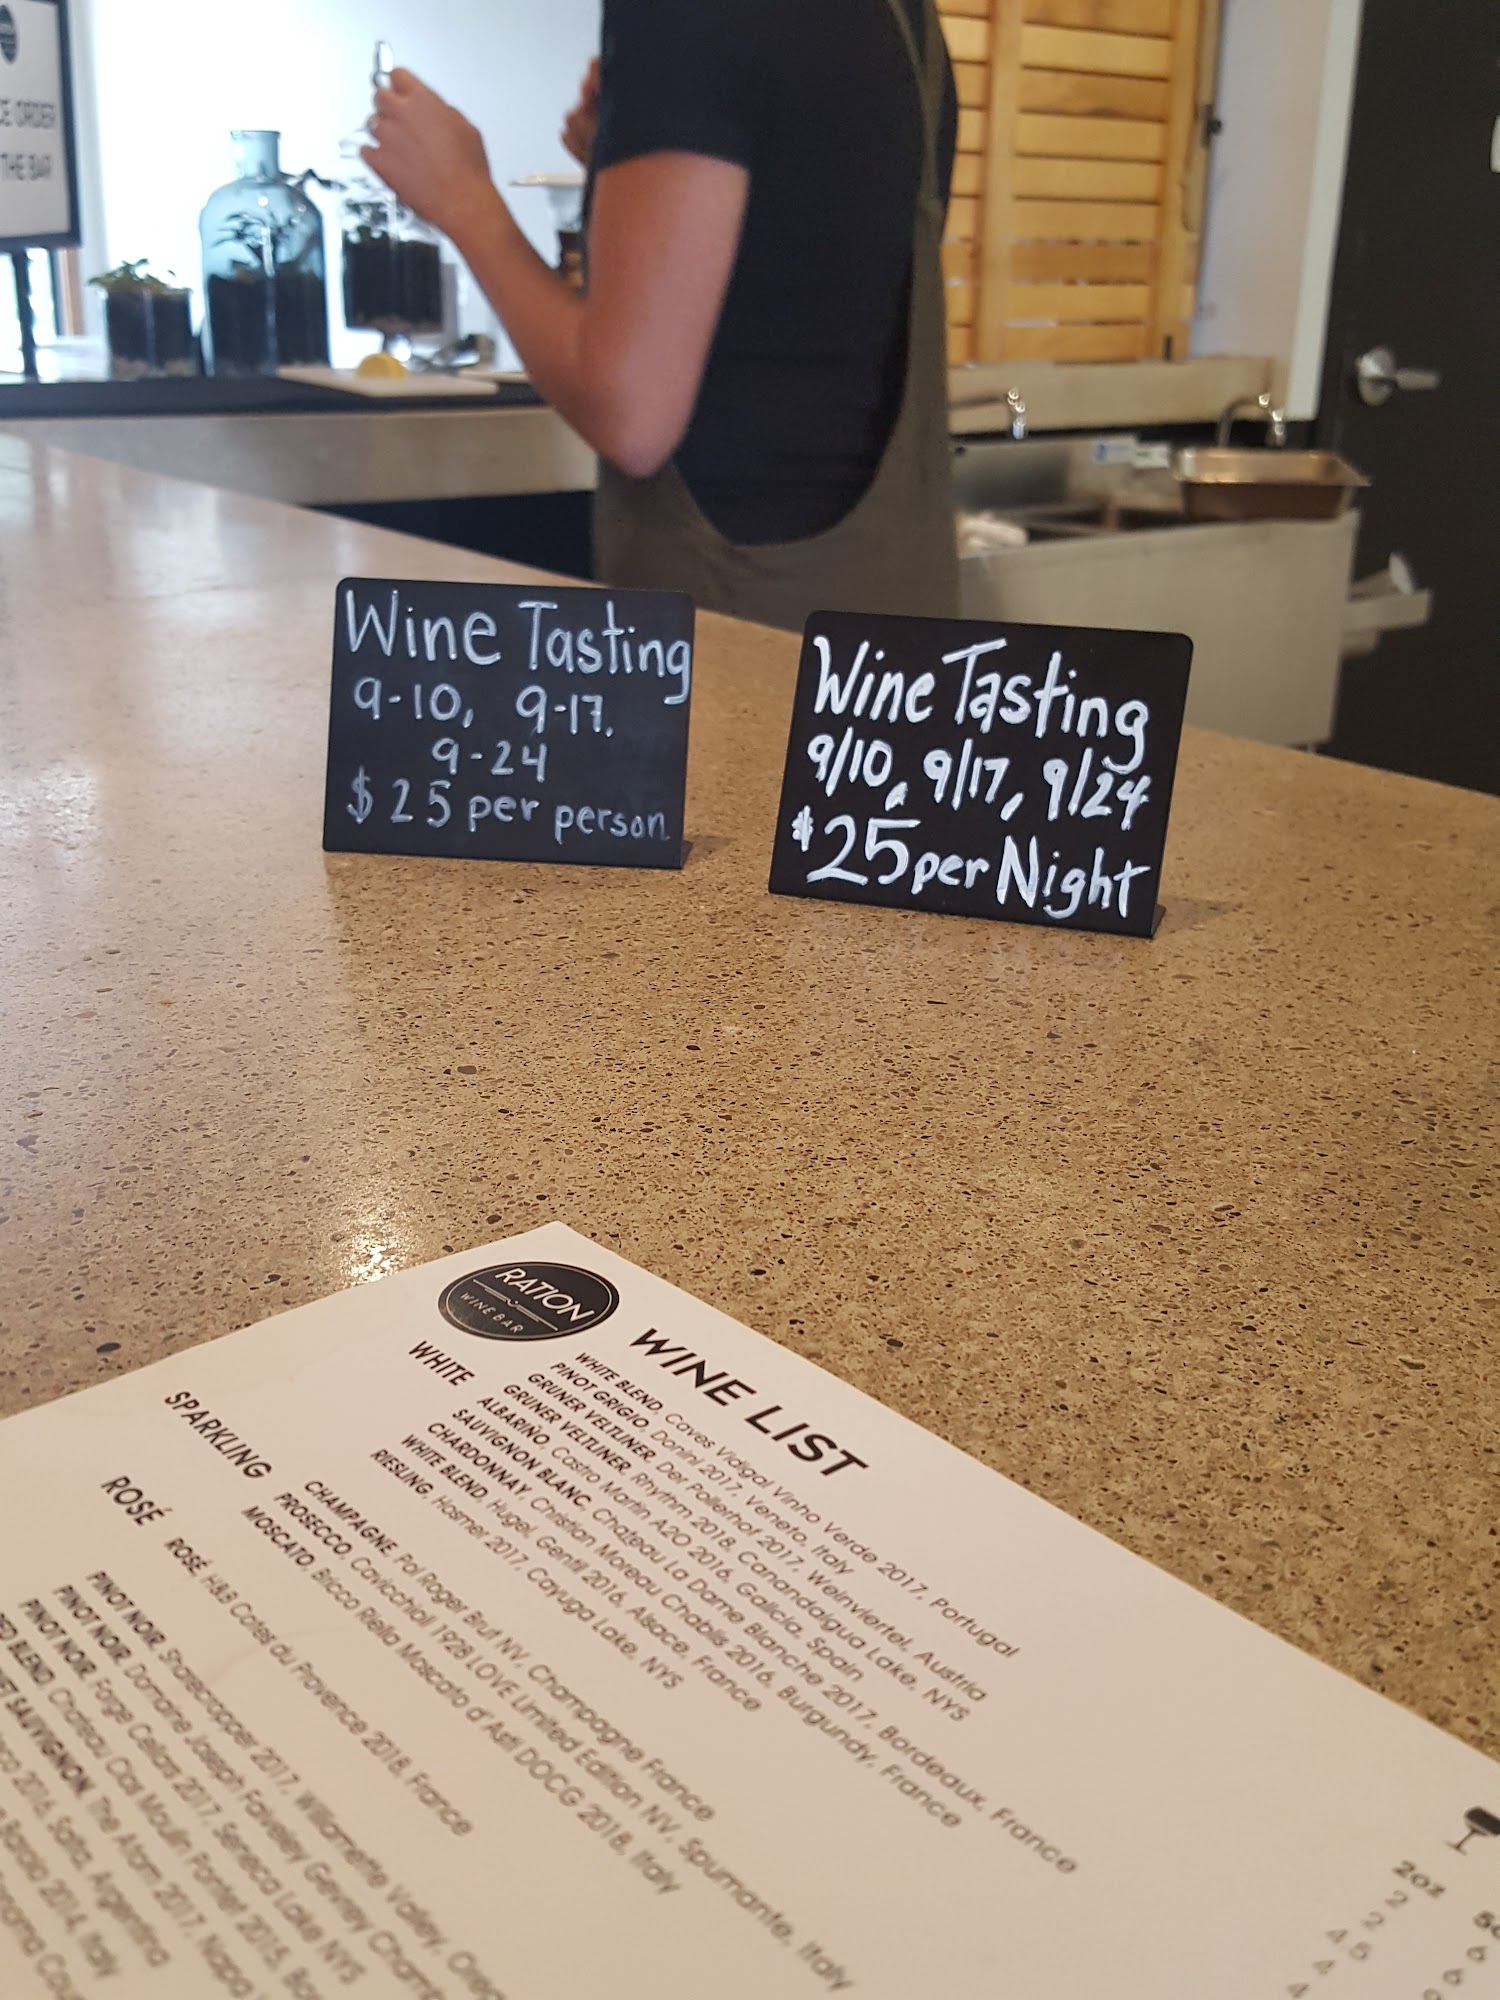 CE ORDER
THE BAR
Wine Tasting
9-10, 9-17.
9-24
$25 per person
Wine Tasting
9/10, 9/17, 9/24
$25 per Night
RATION
WINE BAR
WINE LIST
WHITE
WHITE BLEND, Caves Vidigal Vinho Verde 2017, Portugal
PINOT GRIGIO, Donini 2017, Veneto, Italy
GRUNER VELTLINER, Der Pollerhof 2017, Weinviertel, Austria
GRUNER VELTLINER, Rhythm 2018, Canandaigua Lake, NYS
ALBARIÑO, Castro Martin A2O 2016, Galicia, Spain
SAUVIGNON BLANC, Chateau La Dame Blanche 2017, Bordeaux, France
CHARDONNAY, Christian Moreau Chablis 2016, Burgundy, France
WHITE BLEND, Hugel, Gentil 2016, Alsace, France
RIESLING, Hosmer 2017, Cayuga Lake, NYS
SPARKLING
CHAMPAGNE, Pol Roger Brut NV, Champagne France
PROSECCO, Cavicchioli 1928 LOVE Limited Edition NV, Spumante, Italy
MOSCATO, Bricco Riella Moscato d'Asti DOCG 2018, Italy
ROSÉ
ROSÉ, H&B Cotes du Provence 2018, France
PINOT NOIR, Sharecropper 2017, Willamette Valley,
PINOT NOIR, Domaine Joseph Faiveley Gevrey
PINOT NOIR, Forge Cellars 2017, Seneca Lake NYS
BLEND, Chateau Clos Moulin Pontet 2015,
SAUVIGNON, The Atom 2017, Napa
2016, Salta, Argentina
2014, Italy
2oz
2 6
2 6
4.5
4
4